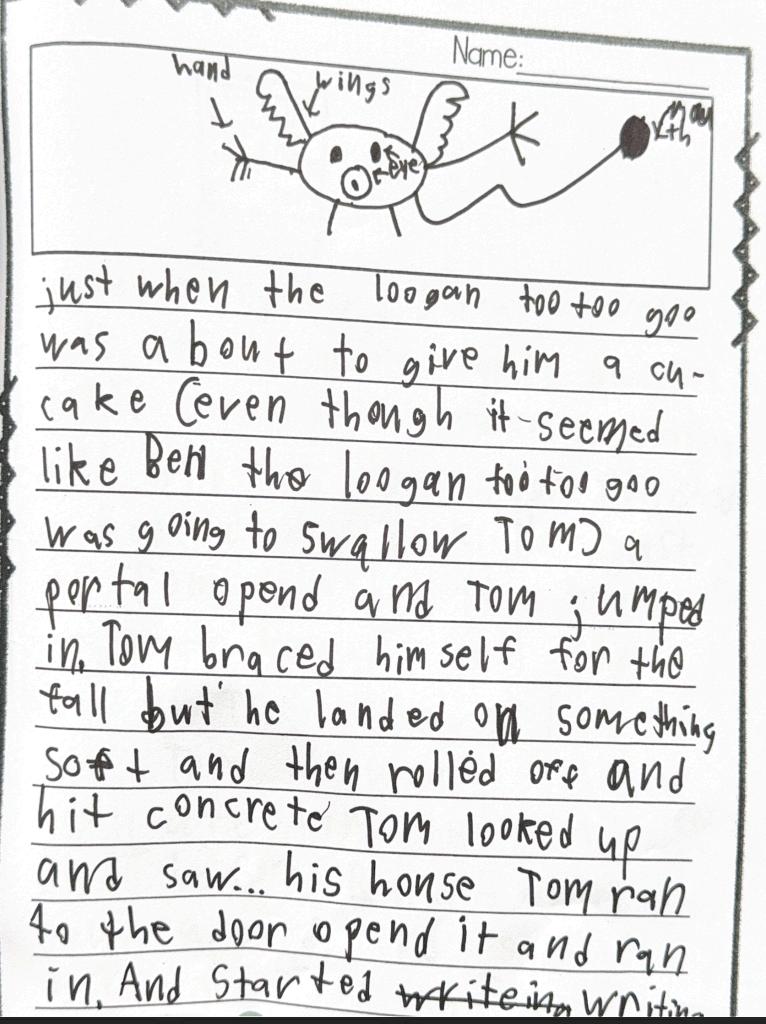 Name:
hand
wings
eye
just when the loogan too too goo
was about to give him a cu-
cake (even though it seemed
like Ben the loogan too too goo
was going to swallow Tom) a
portal opend and Tom jumped
in. Tom braced himself for the
fall but he landed on something
soft and then rolled off and
hit concrete Tom looked up
and saw... his house Tom ran
to the door opend it and ran
in. And started writein writing